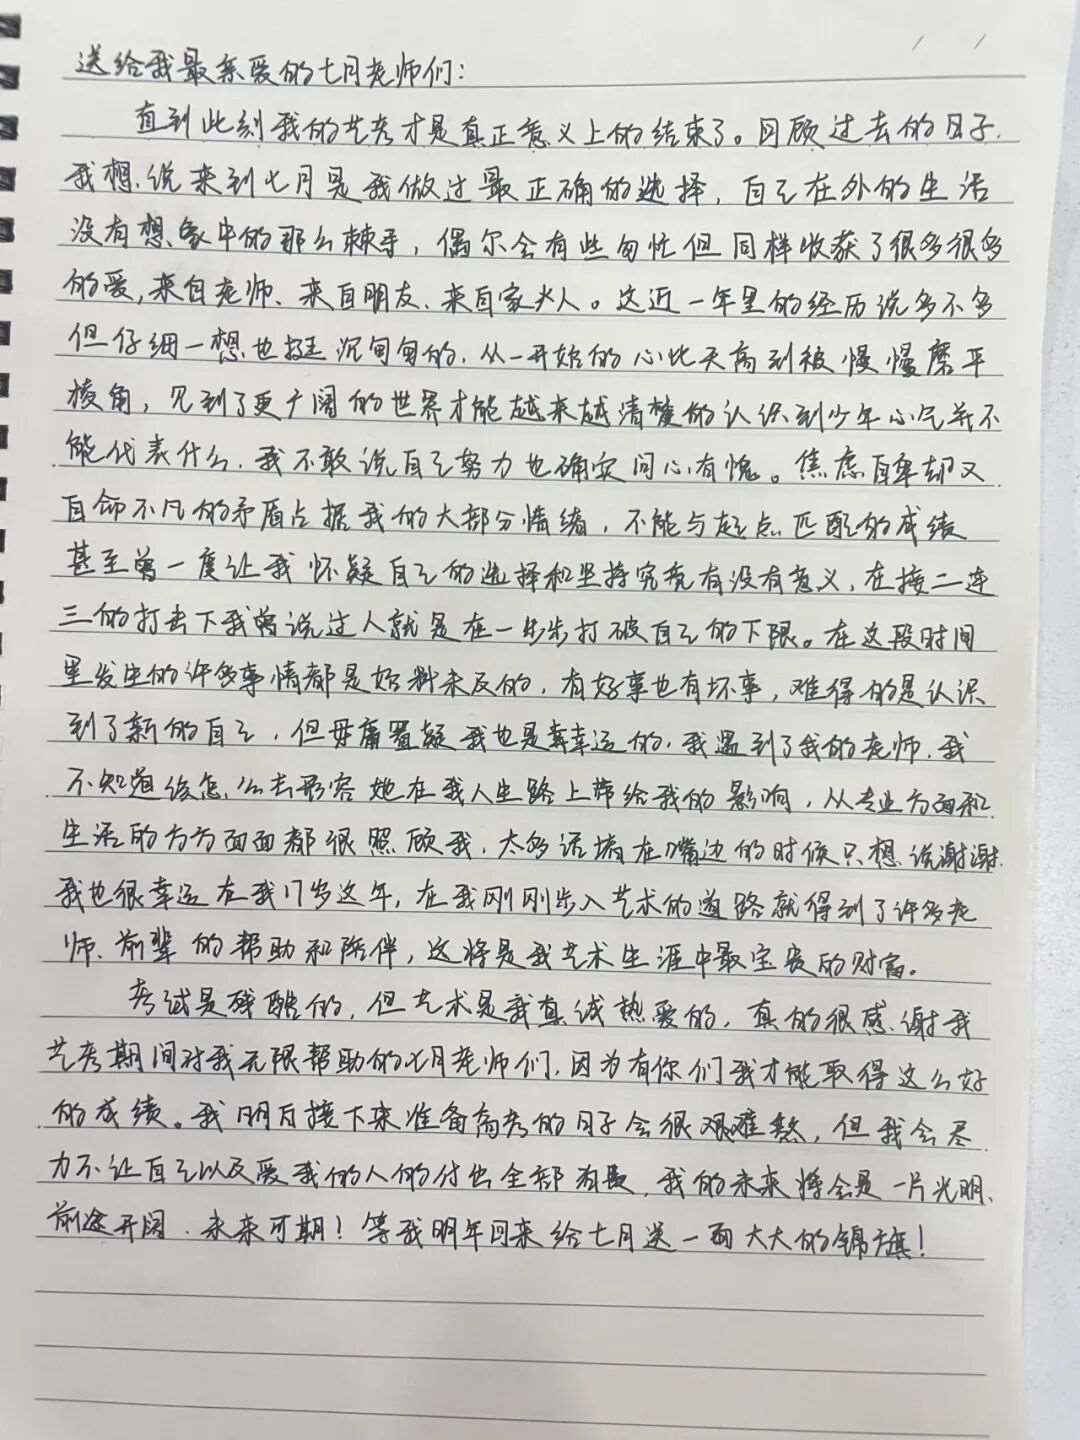 送给我最亲爱的七月老师们：
直到此刻我的艺考才是真正意义上的结束了。回顾过去的日子，
我想说来到七月是我做过最正确的选择，自己在外的生活
没有想象中的那么棘手，偶尔会有些匆忙但同样收获了很多很多
的爱，来自老师、来自朋友、来自家人。这近一年里的经历说多不多
但仔细一想也挺沉甸甸的，从一开始的心比天高到被慢慢磨平
棱角，见到了更广阔的世界才能越来越清楚的认识到少年心气并不
能代表什么，我不敢说自己努力也确实问心有愧。焦虑自卑却又
自命不凡的矛盾占据我的大部分情绪，不能与起点匹配的成绩
甚至曾一度让我怀疑自己的选择和坚持究竟有没有意义，在接二连
三的打击下我曾说过人就是在一步步打破自己的下限。在这段时间
里发生的许多事情都是始料未及的，有好事也有坏事，难得的是认识
到了新的自己，但毋庸置疑我也是幸运的，我遇到了我的老师，我
不知道该怎么去形容她在我人生路上带给我的影响，从专业方面和
生活的方方面面都很照顾我，太多话堵在嘴边的时候只想说谢谢。
我也很幸运在我17岁这年，在我刚刚步入艺术的道路就得到了许多老
师、前辈的帮助和陪伴，这将是我艺术生涯中最宝贵的财富。
考试是残酷的，但艺术是我真诚热爱的，真的很感谢我
艺考期间对我无限帮助的七月老师们，因为有你们我才能取得这么好
的成绩。我明白接下来准备高考的日子会很艰难熬，但我会尽
力不让自己以及爱我的人的付出全部白费，我的未来将会是一片光明、
前途开阔、未来可期！等我明年回来给七月送一面大大的锦旗！